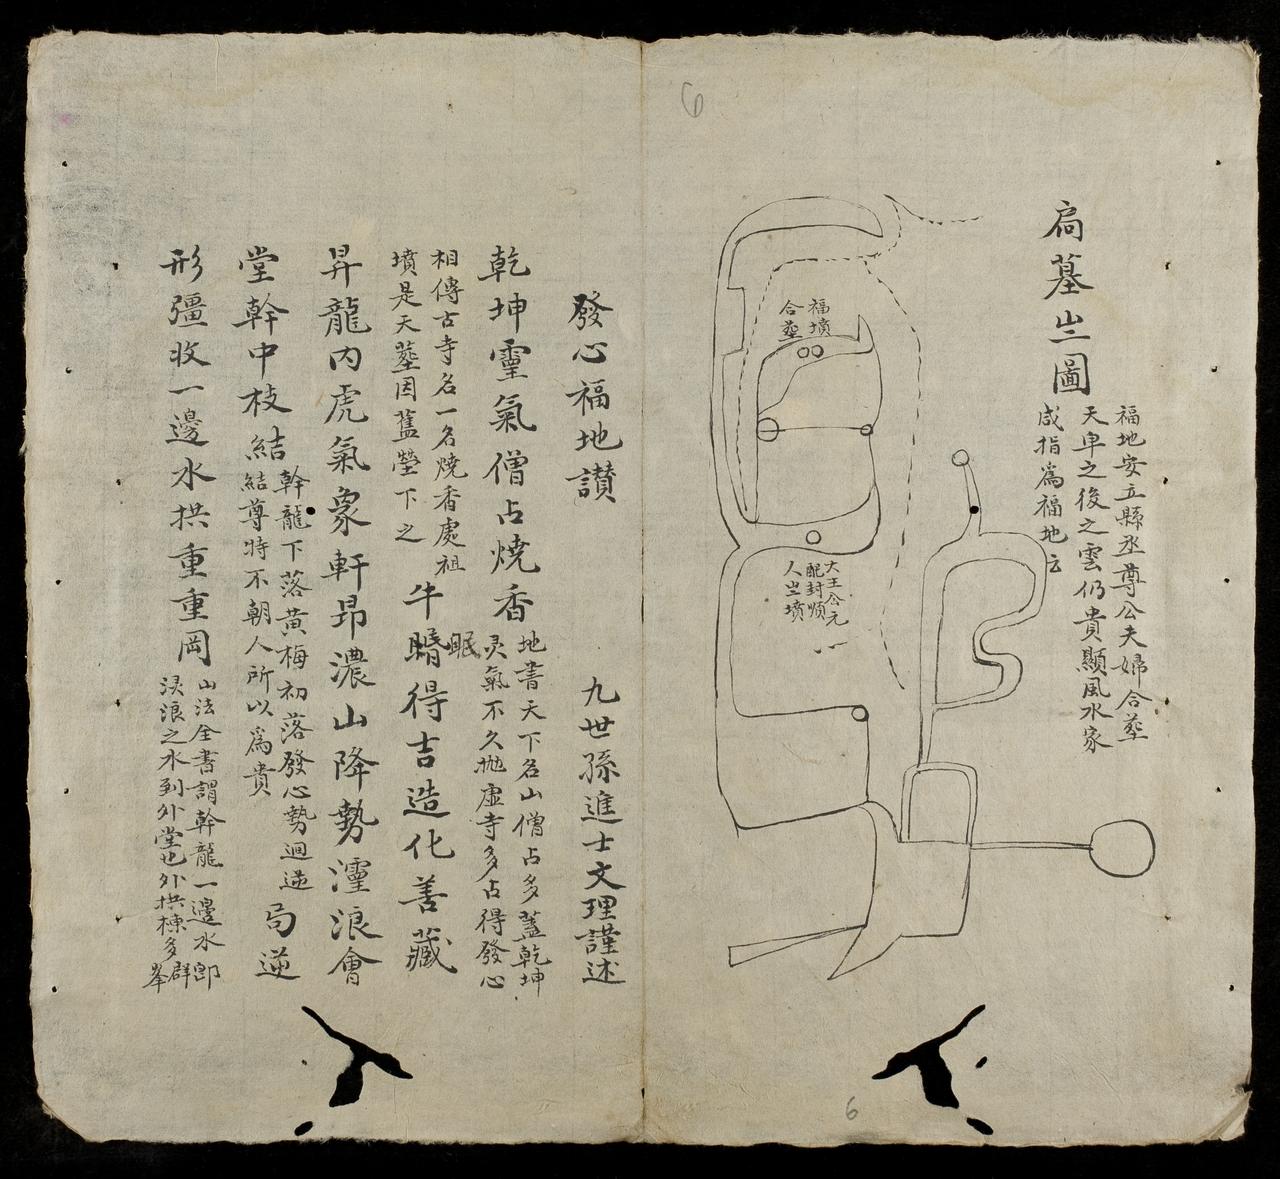 6
扃墓山圖
福地安立縣丞尊公夫婦合塟
天卑之後之雲仍貴顯風水家
咸指爲福地云
福墳
合塟
大王公元
配封順
人山墳
6
發心福地讃
九世孫進士文理謹述
乾坤靈氣僧占燒香
地書天下名山僧占多蓋乾坤
灵氣不久抛虛寺多占得發心
相傳古寺名一名燒香處祖
墳是天塟因舊塋下之
牛
眠
得吉造化善藏
昇龍内虎氣象軒昂濃山降勢灋浪會
堂幹中枝結
幹龍下落黄梅初落發心勢迴逆
結尊特不朝人所以爲貴
局逆
形彊收一邊水拱重重岡
山法全書謂幹龍一邊水郎
浪之水到外堂也外拱棟多群
峯